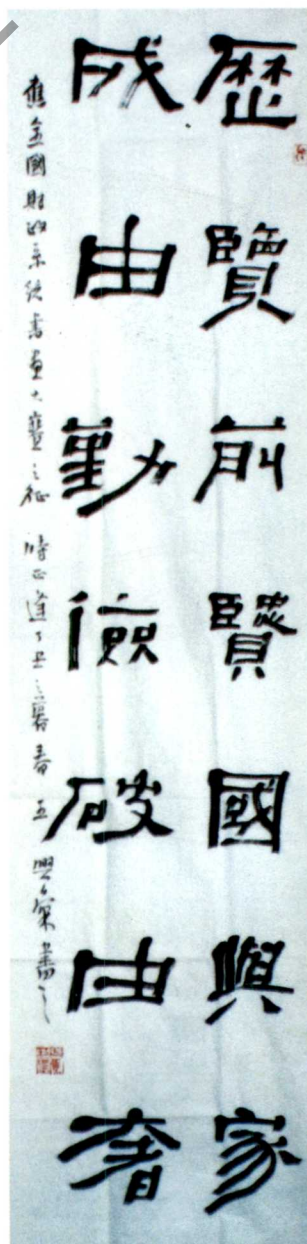 歷覽前賢國與家
成由勤儉破由奢
應全國財政系統書畫大賽之征 時正道丁丑之暮春 五興家書之